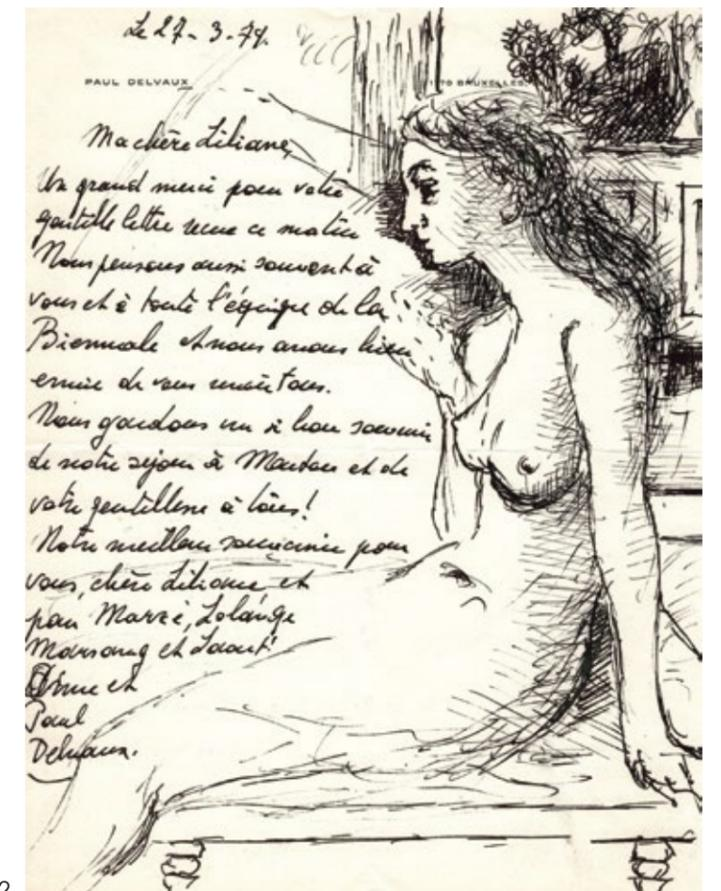 Le 27-3-74.
PAUL DELVAUX 1170 BRUXELLES
Ma chère Liliane,
Un grand merci pour votre
gentille lettre reçue ce matin
Nous pensons aussi souvent à
vous et à toute l'équipe de la
Biennale et nous avons bien
envie de vous revoir tous.
Nous gardons un si bon souvenir
de notre séjour à Menton et de
votre gentillesse à tous!
Notre meilleur souvenir pour
vous, chère Liliane et
pour Marzé, Solange
et
et
Paul
Delvaux.
2